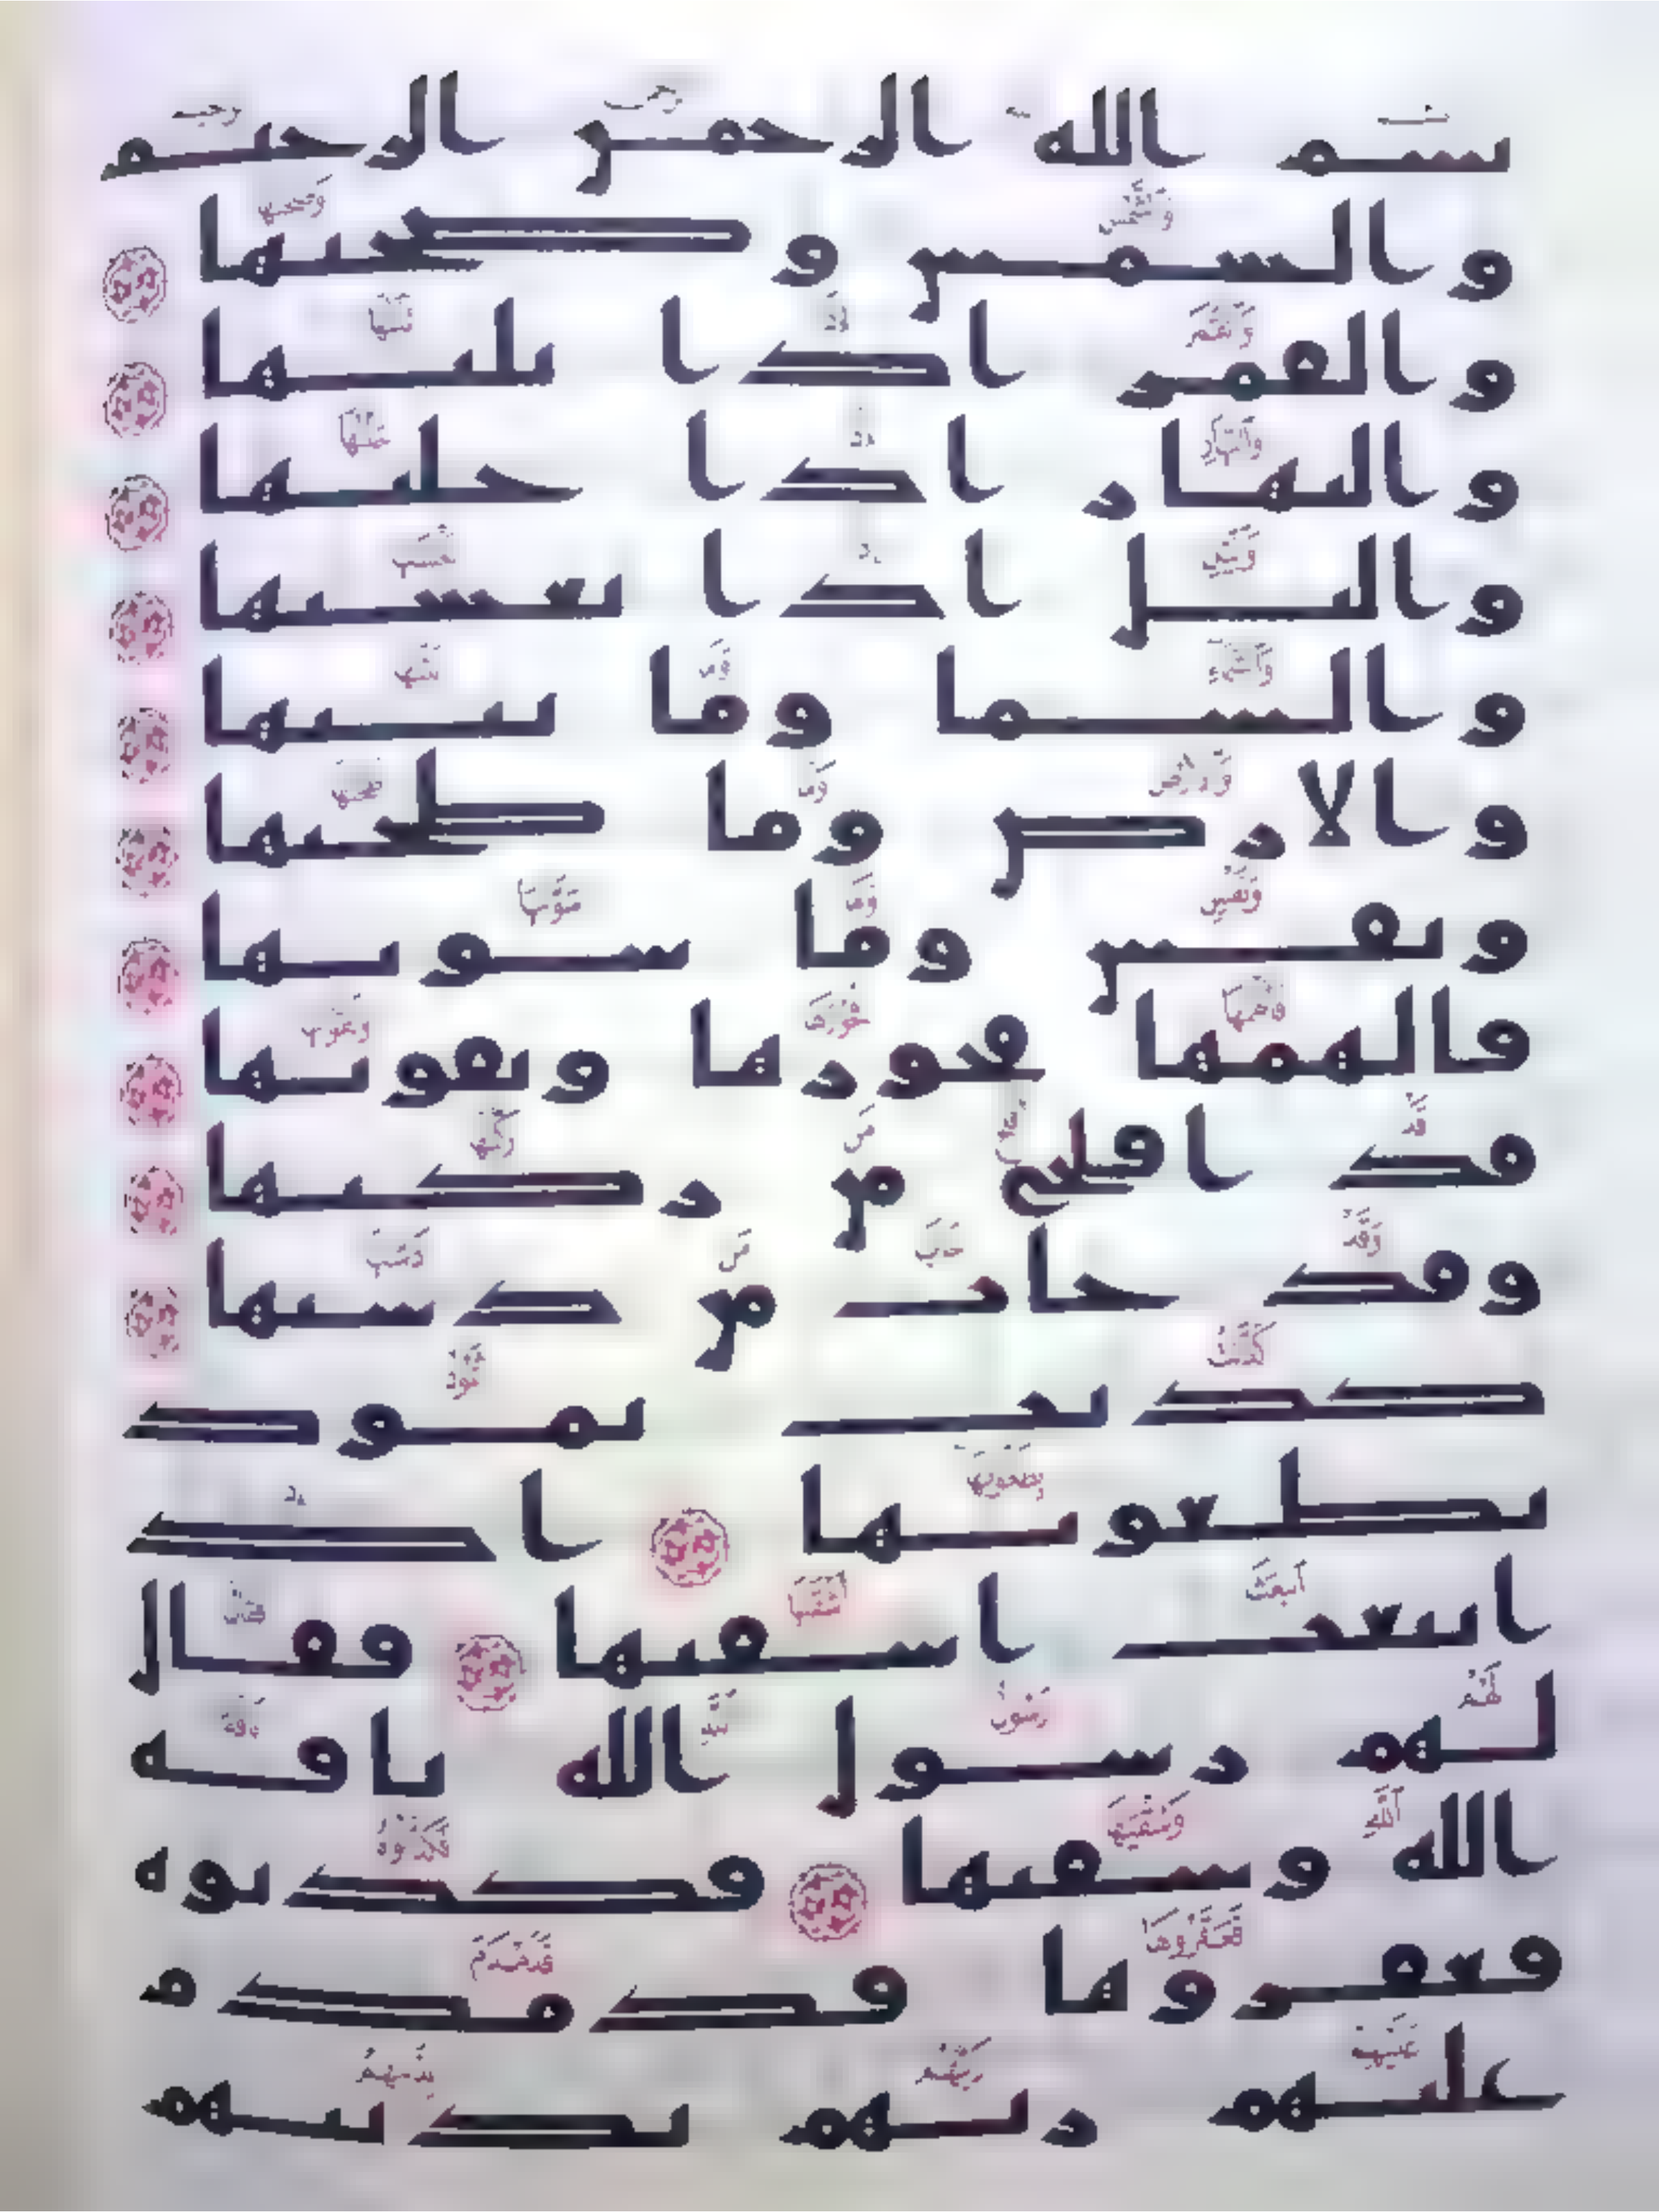 بسم الله الرحمن الرحيم
والشمس وضحيها
والقمر اذا تليها
والنهار اذا جليها
واليل اذا يغشيها
والسما وما بنيها
والارض وما طحيها
ونفس وما سويها
فالهمها فجورها وتقويها
قد افلح من زكيها
وقد خاب من دسيها
كذبت ثمود
بطغويها اذ
انبعث اشقيها فقال
لهم رسول الله ناقه
الله وسقيها فكذبوه
فعقروها فدمدم
عليهم ربهم بذنبهم